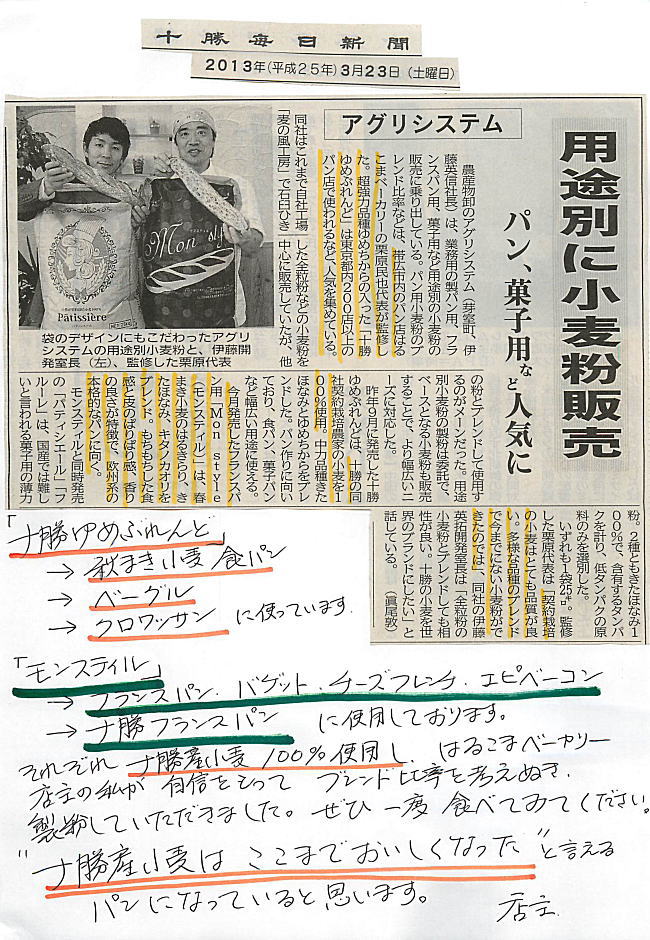 十勝毎日新聞
2013年(平成25年)3月23日 (土曜日)
用途別に小麦粉販売
パン、菓子用など人気に
アグリシステム
農産物卸のアグリシステム（芽室町、伊
藤英信社長）は、業務用の製パン用、フラ
ンスパン用、菓子用など用途別の小麦粉の
販売に乗り出している。パン用小麦粉のブ
レンド比率などは、帯広市内のパン店はる
こまベーカリーの栗原民也代表が監修し
た。超強力品種ゆめちからの入った「十勝
ゆめぶれんど」は東京都内200店以上の
パン店で使われるなど、人気を集めている。
Mon style
Pâtissière
袋のデザインにもこだわったアグリ
システムの用途別小麦粉と、伊藤開
発室長（左）、監修した栗原代表
同社はこれまで自社工場
「麦の風工房」で石臼ひき
した全粒粉などの小麦粉を
中心に販売していたが、他
の粉とブレンドして使用す
るのがメーンだった。用途
別小麦粉の製粉は委託で、
ベースとなる小麦粉も販売
することで、より幅広いニ
ーズに対応した。
昨年9月に発売した十勝
ゆめぶれんどは、十勝の同
社契約栽培農家の小麦を1
00%使用。中力品種きた
ほなみとゆめちからをブレ
ンドした。パン作りに向い
ており、食パン、菓子パン
など幅広い用途に使える。
今月発売したフランスパ
ン用「Mon style
（モンスティル）」は、春
まき小麦のはるきらり、き
たほなみ、キタノカオリを
ブレンド。もちもちした食
感と皮のぱりぱり感、香り
の良さが特徴で、欧州系の
本格的なパンに向く。
モンスティルと同時発売
の「パティシエール」「フ
ルーレ」は、国産では難し
いと言われる菓子用の薄力
粉。2種ともきたほなみ1
00%で、含有するタンパ
クを計り、低タンパクの原
料のみを選別した。
いずれも1袋25㌔。監修
した栗原代表は「契約栽培
の小麦はとても品質が良
い。多様な品種のブレンド
で今までにない小麦粉がで
きたのでは」、同社の伊藤
英拓開発室長は「全粒粉の
小麦粉とブレンドしても相
性が良い。十勝の小麦を世
界のブランドにしたい」と
話している。（眞尾敦）
「十勝ゆめぶれんど」
→ 秋まき小麦食パン
→ ベーグル
→ クロワッサン に使っています.
「モンスティル」
→ フランスパン. バゲット. チーズフレンチ. エピベーコン
→ 十勝フランスパン に使用しております。
それぞれ 十勝産小麦 100%使用し、はるこまベーカリー
店主の私が 自信をもって ブレンド比率を考えぬき.
製粉していただきました。ぜひ 一度 食べてみてください。
"十勝産小麦は ここまでおいしくなった"と言える
パンになっていると思います。 店主.